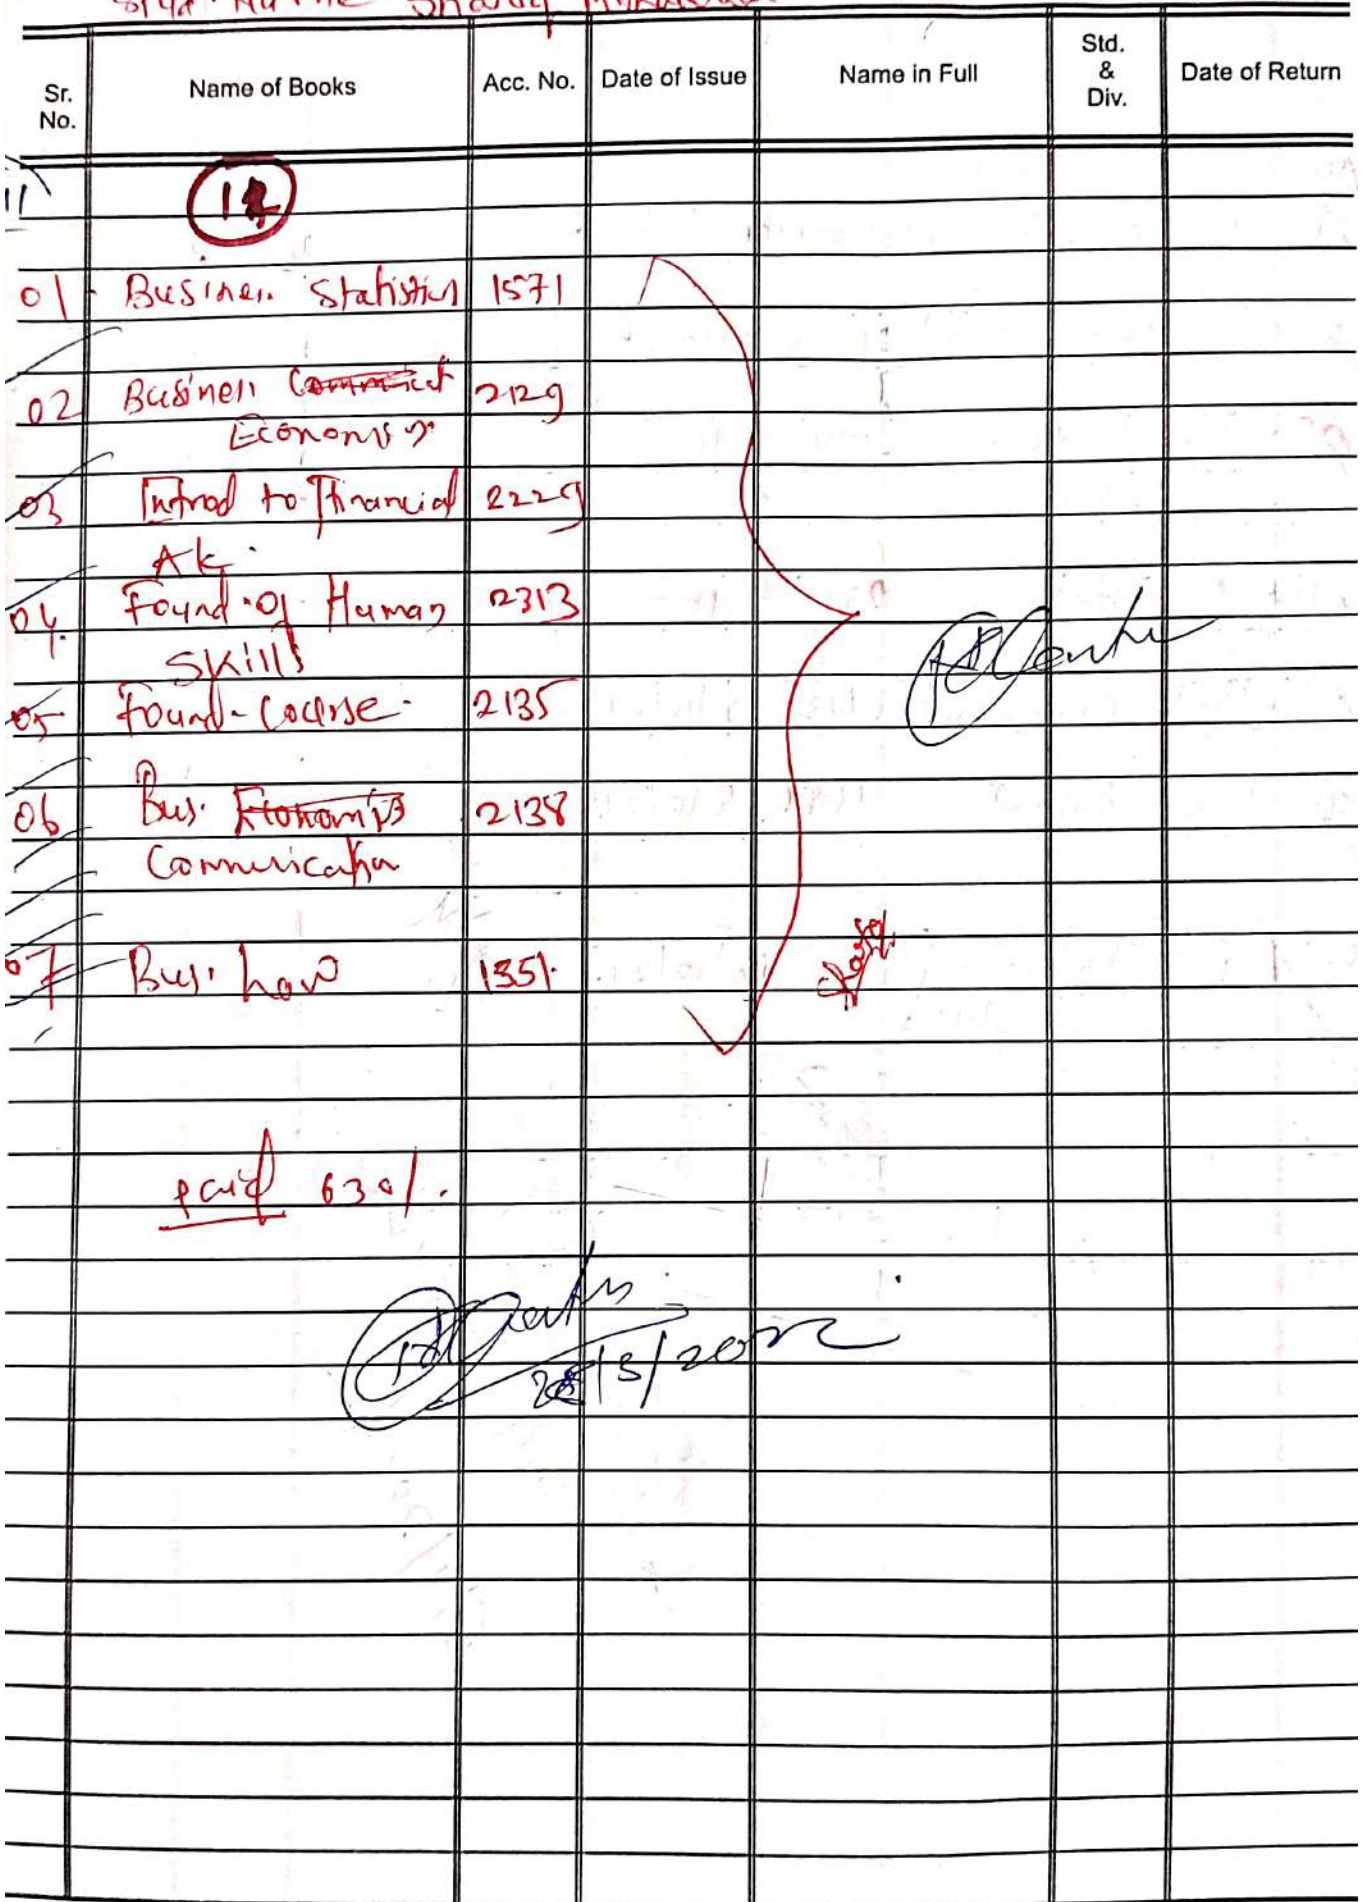 Sr. No. Name of Books Acc. No. Date of Issue Name in Full Std. & Div. Date of Return
01 Business Statistics 1571
02 Business 2129
Economics
03 Introd to Financial 2229
A/c.
04. Found. of Human 2313
Skills
05 Found. Course. 2135
06 Bus. Economics 2138
Communication
07 Bus. Law 1351.
paid 630/.
/3/2022